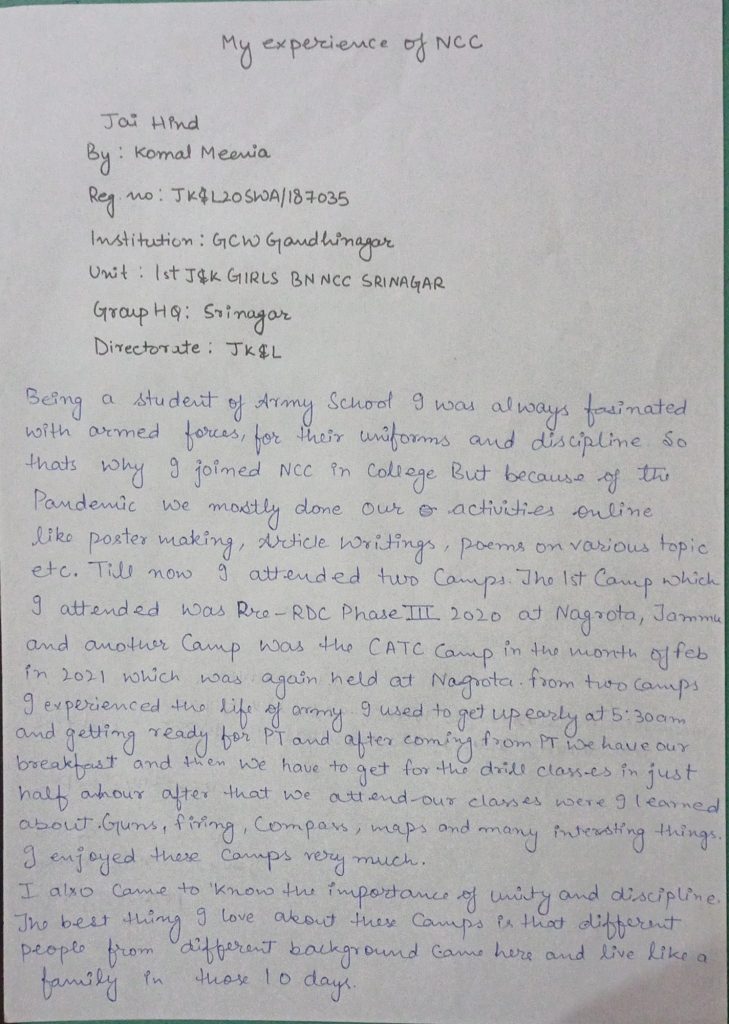 My experience of NCC
Jai Hind
By : Komal Meenia
Reg. no : JK&L20SWA/187035
Institution : GCW Gandhinagar
Unit : 1st J&K GIRLS BN NCC SRINAGAR
Group HQ : Srinagar
Directorate : JK&L
Being a student of Army School I was always fasinated
with armed forces, for their uniforms and discipline. So
thats why I joined NCC in College But because of the
Pandemic we mostly done our activities online
like poster making, Article Writings, poems on various topic
etc. Till now I attended two Camps. The 1st Camp which
I attended was Pre-RDC Phase III 2020 at Nagrota, Jammu
and another Camp was the CATC Camp in the month of feb
in 2021 which was again held at Nagrota. from two camps
I experienced the life of army. I used to get up early at 5:30am
and getting ready for PT and after coming from PT we have our
breakfast and then we have to get for the drill classes in just
half ahour after that we attend our classes were I learned
about Guns, firing, Compass, maps and many intersting things.
I enjoyed these Camps very much.
I also came to know the importance of unity and discipline.
The best thing I love about these Camps is that different
people from different background came here and live like a
family in those 10 days.